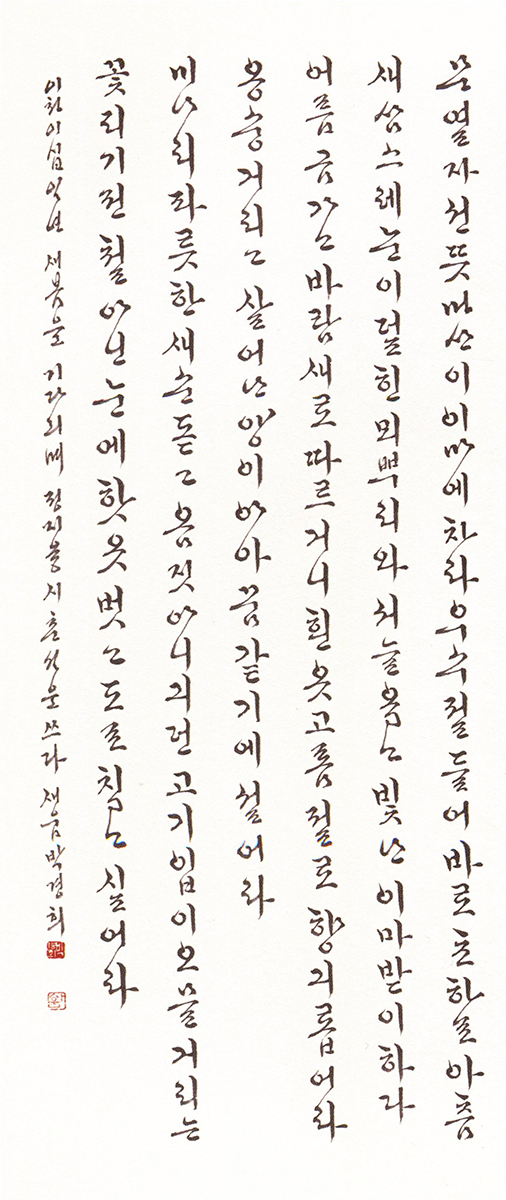 문열자선뜻먼산이이마에차라우수절들어바로초하로아츰
새삼스레눈이덮힌뫼뿌리와서늘옵고빛난이마받이하다
어름금가고바람새로따르거니흰옷고름절로향긔롭어라
옹숭거리고살어난양이아아꿈같기에설어라
미나리파릇한새순돋고옴짓아니긔던고기입이오물거리는
꽃피기전철아닌눈에핫옷벗고도로칩고싶어라
새봄을 기다리며 정지용 시 춘설을 쓰다 박경희